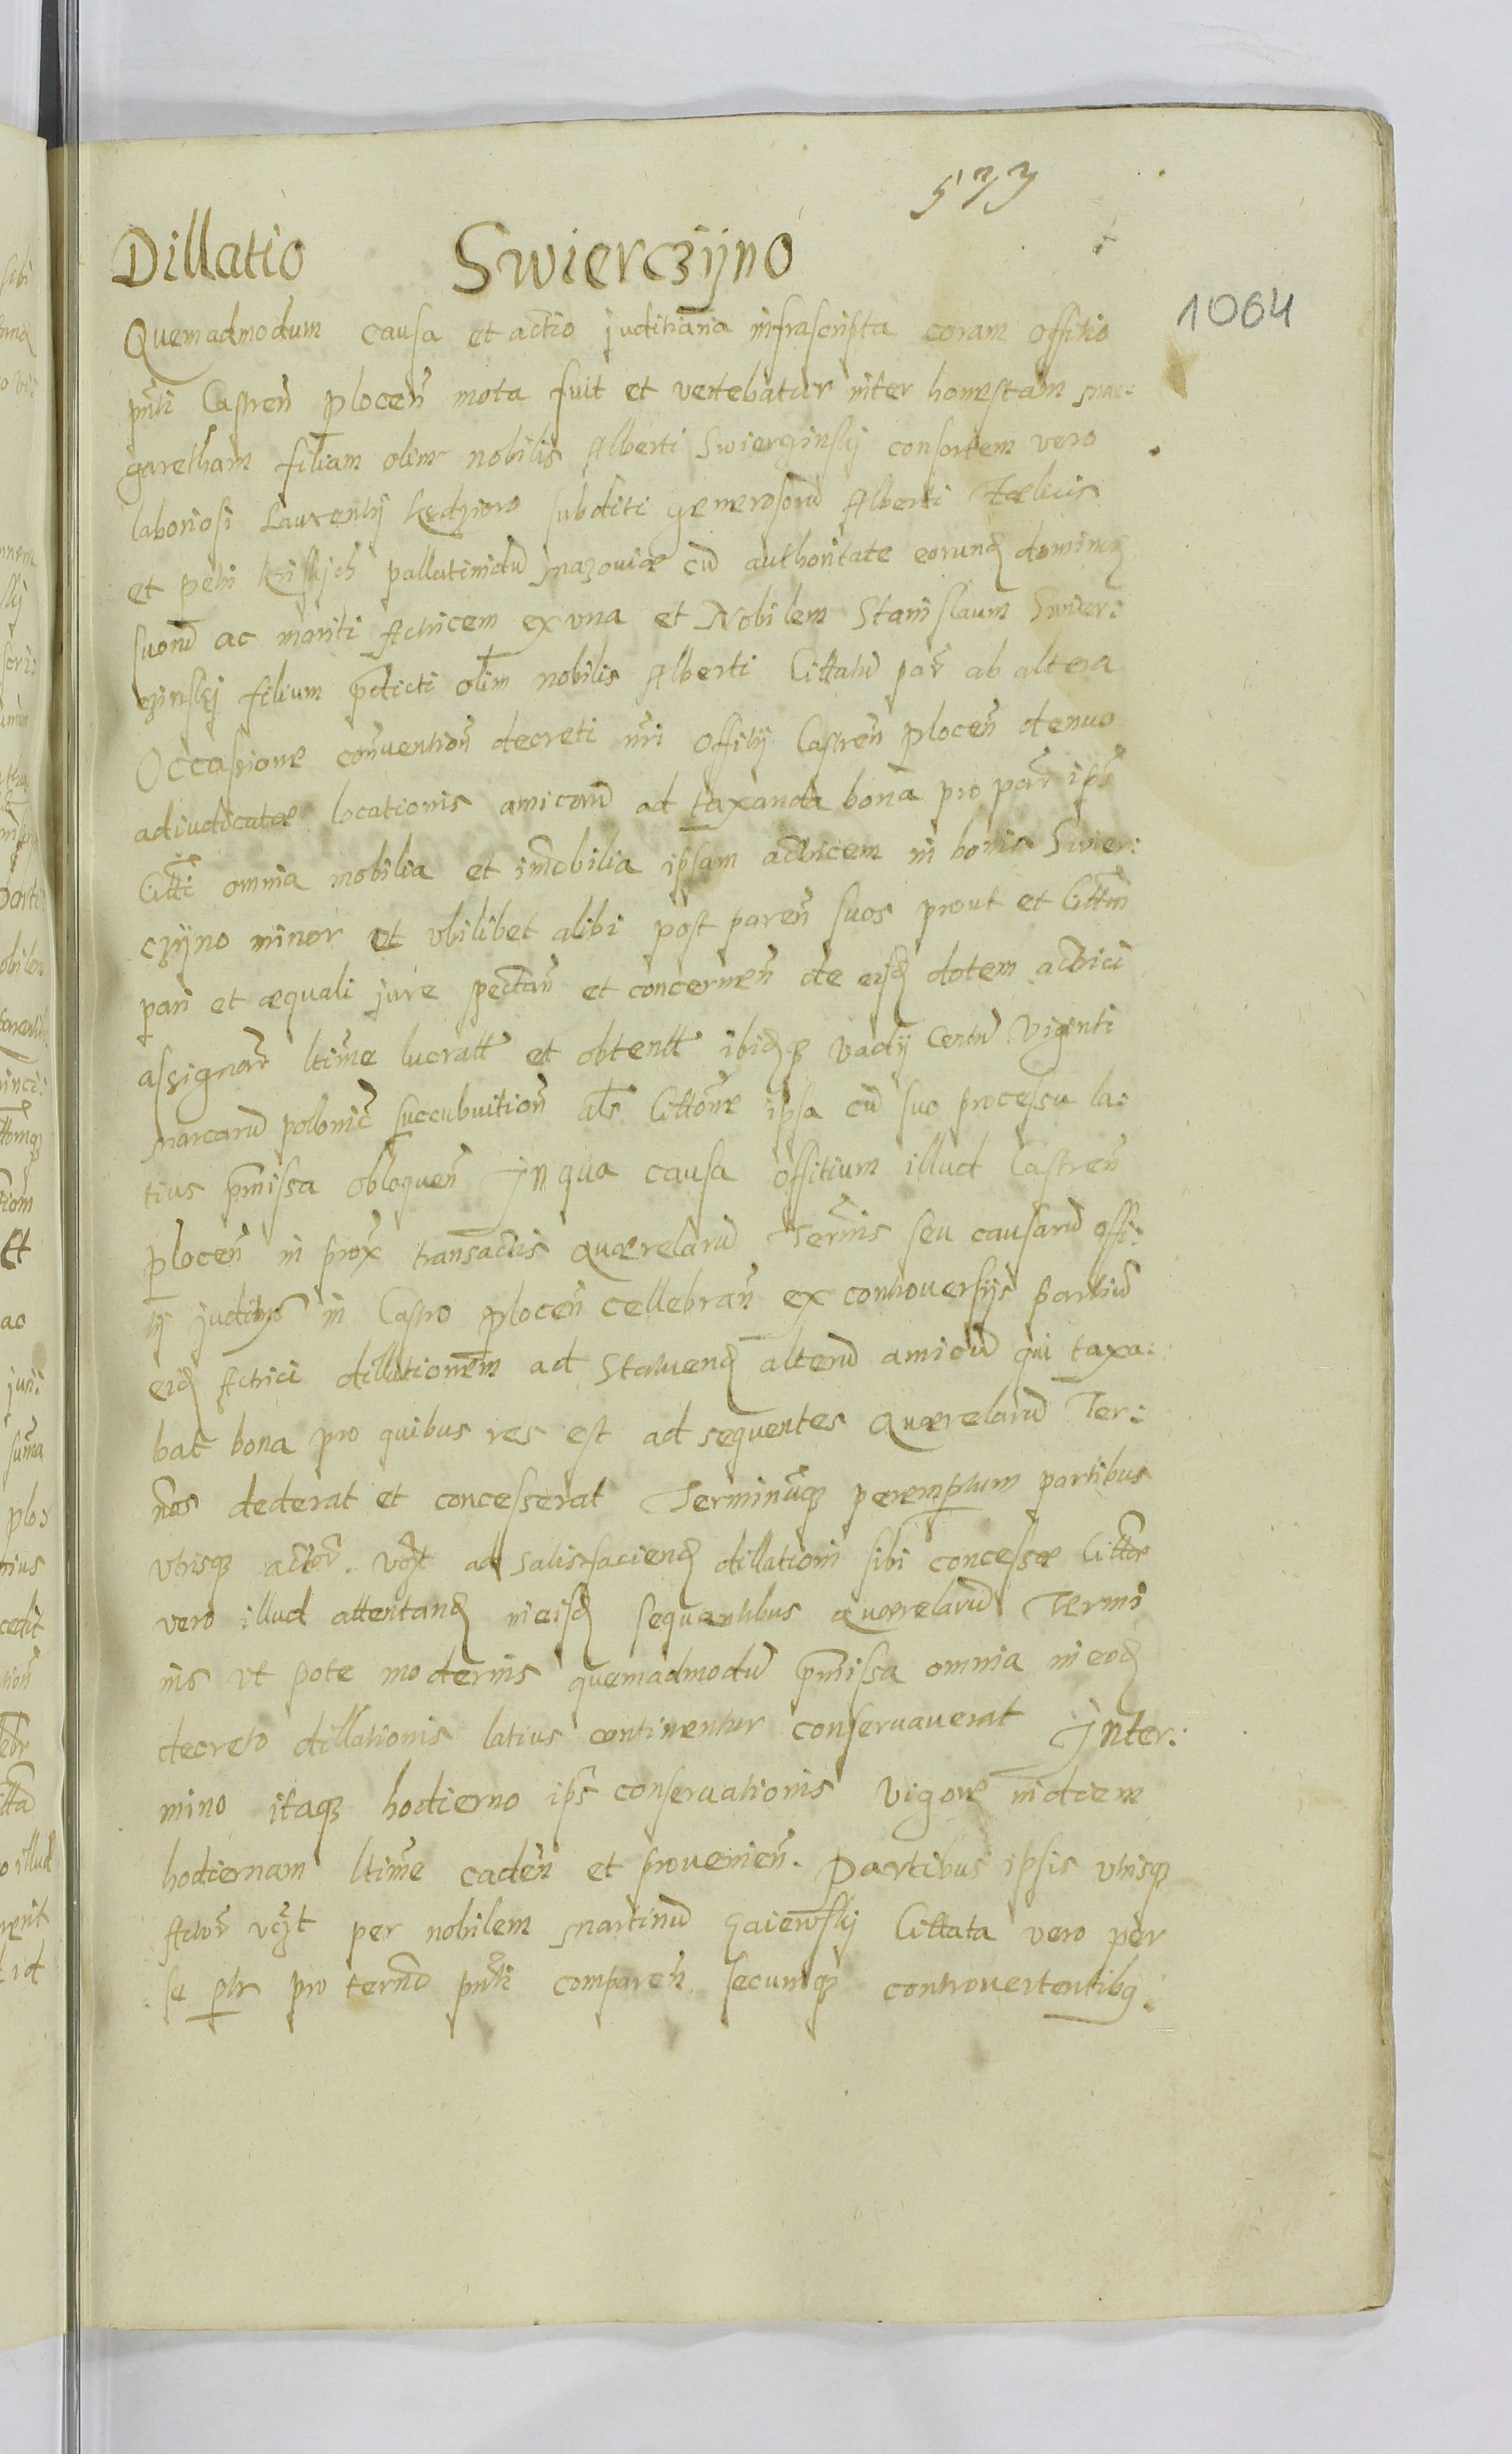 573
Dillatio Swierczÿno
1064
Quemadmodum causa et actio juditiaria infrascripta coram offitio
pnti Castren plocen mota fuit et vertebatur inter honestam Mar:
garetham filiam olim nobilis Alberti Swierczinskj consortem vero
laboriosi Laurentÿ Kędziora subditi generosoru Alberti Fœlicis
et petri Kriskich pallatinidu Mazouiæ cu authoritate eorund dominor
suoru ac mariti Actricem ex vna et Nobilem Stanislaum Swier:
czinskj filium pdicti olim nobilis Alberti Cittatu par ab altera
Occasione conuention decreti nri offitÿ Castren plocen denuo
adiudicatæ locationis amicoru ad taxanda bona pro par ips
Citti omnia mobilia et imobilia ipsam actricem in bonis Swier:
czÿno minor et vbilibet alibi post paren suos prout et Cittm
pari et æquali jure spectan et concernen de eisd dotem actrici
assignar ltime lucratt et obtentt ibid p vadÿ Centu Viginti
marcaru polonic succubuition als Cittone ipsa cu suo processu la:
tius pmissa obloquen Jn qua causa offitium illud Castren
plocen in prox transactis quærelaru Termis seu causaru offi:
tÿ juditÿs in Castro plocen cellebran ex controuersÿs partiu
eid Actrici dillationem ad statuend alteru amicu qui taxa:
bat bona pro quibus res est ad sequentes quærelaru Ter:
nos dederat et concesserat Terminuq peremptum partibus
vtrisq actor. vczt ad satisfaciend dillationi sibi concessæ Cittæ
vero illud attentand in eisd sequentibus quærelaru Termi
nis vt pote modernis quemadmodu pmissa omnia in eod
decreto dillationis latius continentur conseruauerat Jnter:
mino itaq hodierno ips conseruationis vigore in diem
hodiernam ltime caden et prouenien. Partibus ipsis vtrisq
Actor vczt per nobilem Martinu Gaiewskj Cittata vero per
se ptr pro termo pnti comparen secumq controuertentibq: